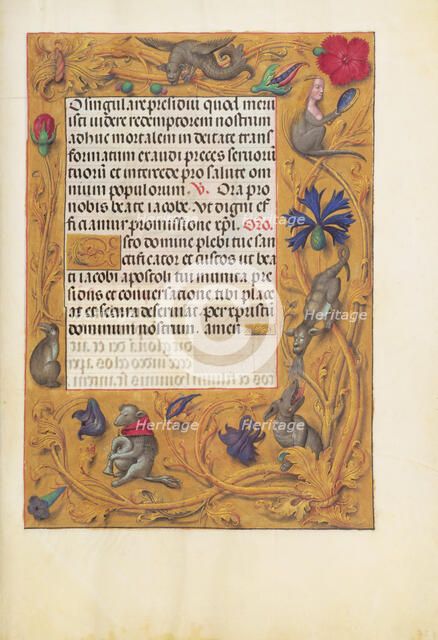 O singulare presidiu quod meru
isti videre redemptorem nostrum
adhuc mortalem in deitate trans
formatum exaudi preces servorum
tuorum et intercede pro salute om
nium populorum. V. Ora pro
nobis beate iacobe. Ut digni ef
ficiamur promissione xpi. Oro.
Esto domine plebi tue san
ctificator et custos ut bea
ti iacobi apostoli tui munita pre
sidiis et conversatione tibi place
at et secura deserviat. per xpristum
dominum nostrum. amen
heritage-images
Heritage
Heritage
Heritage
Heritage
Heritage
Heritage